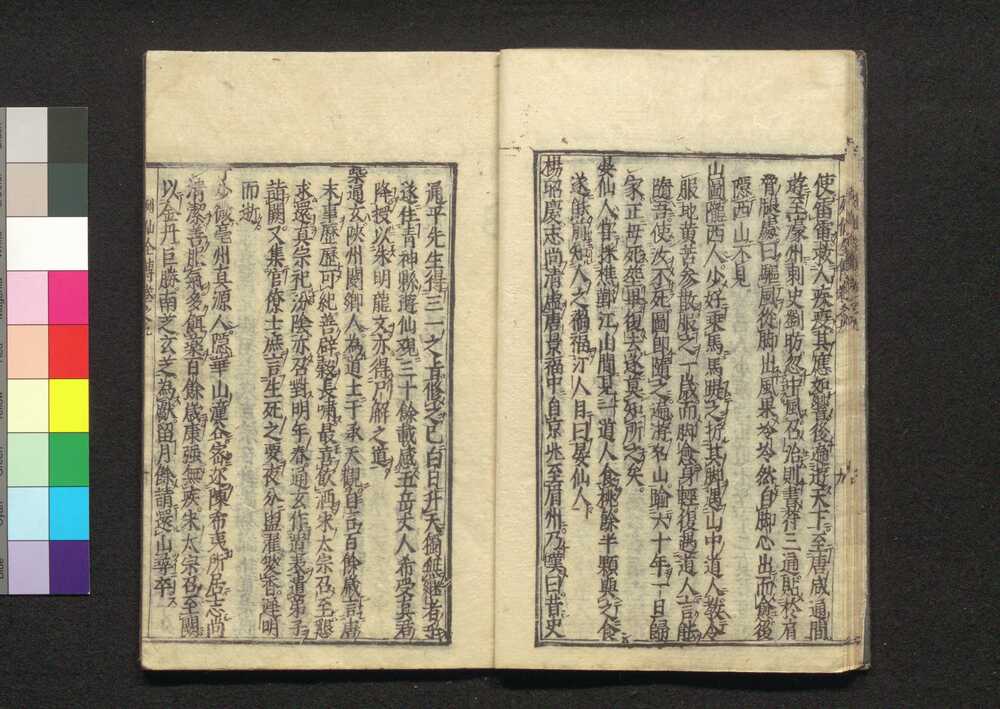 使甯甯救人疾疫其應如響後遍遊天下至唐咸通間
遊至濠州刺史劉昉忽中風召治則書符三通貼於肩
胷腿處曰驅風從脚出風果冷冷然自脚心出而愈後
隱西山不見
山圖隴西人少好乘馬馬踶之折其脚遇山中道人教令
服地黃苦參散服之一歲而脚愈身輕復遇道人言能
隨吾使汝不死圖即隨之遍游名山踰六十年一日歸
家正母死塋畢復去遂莫知所之矣
晏仙人嘗採樵鄞江山間某一道人食桃餘半顆與之食
遂能預知人之禍福汀人目曰晏仙人
楊昭慶志尚清虛唐景福中自京兆至眉州乃嘆曰昔史
滬平先生得三一之旨修之已白日升天獨無繼者乎
遂住青神縣遊仙觀三十餘載感五岳丈人希受真君
降授以朱明龍文亦得尸解之道
柴通玄陜州閿鄉人為道士于承天觀年百餘歲言唐
末事歷歷可紀善辟穀長嘯最喜飲酒宋太宗召至懇
求還真宗祀汾陰亦召對明年春通玄作遺表遣弟子
詣闕又集官僚士庶言生死之要夜分盥濯焚香遲明
而逝
清潔善服氣多餌藥百餘歲康強無疾宋太宗召至闕
以金丹巨勝南芝玄芝為獻留月餘請還山尋卒